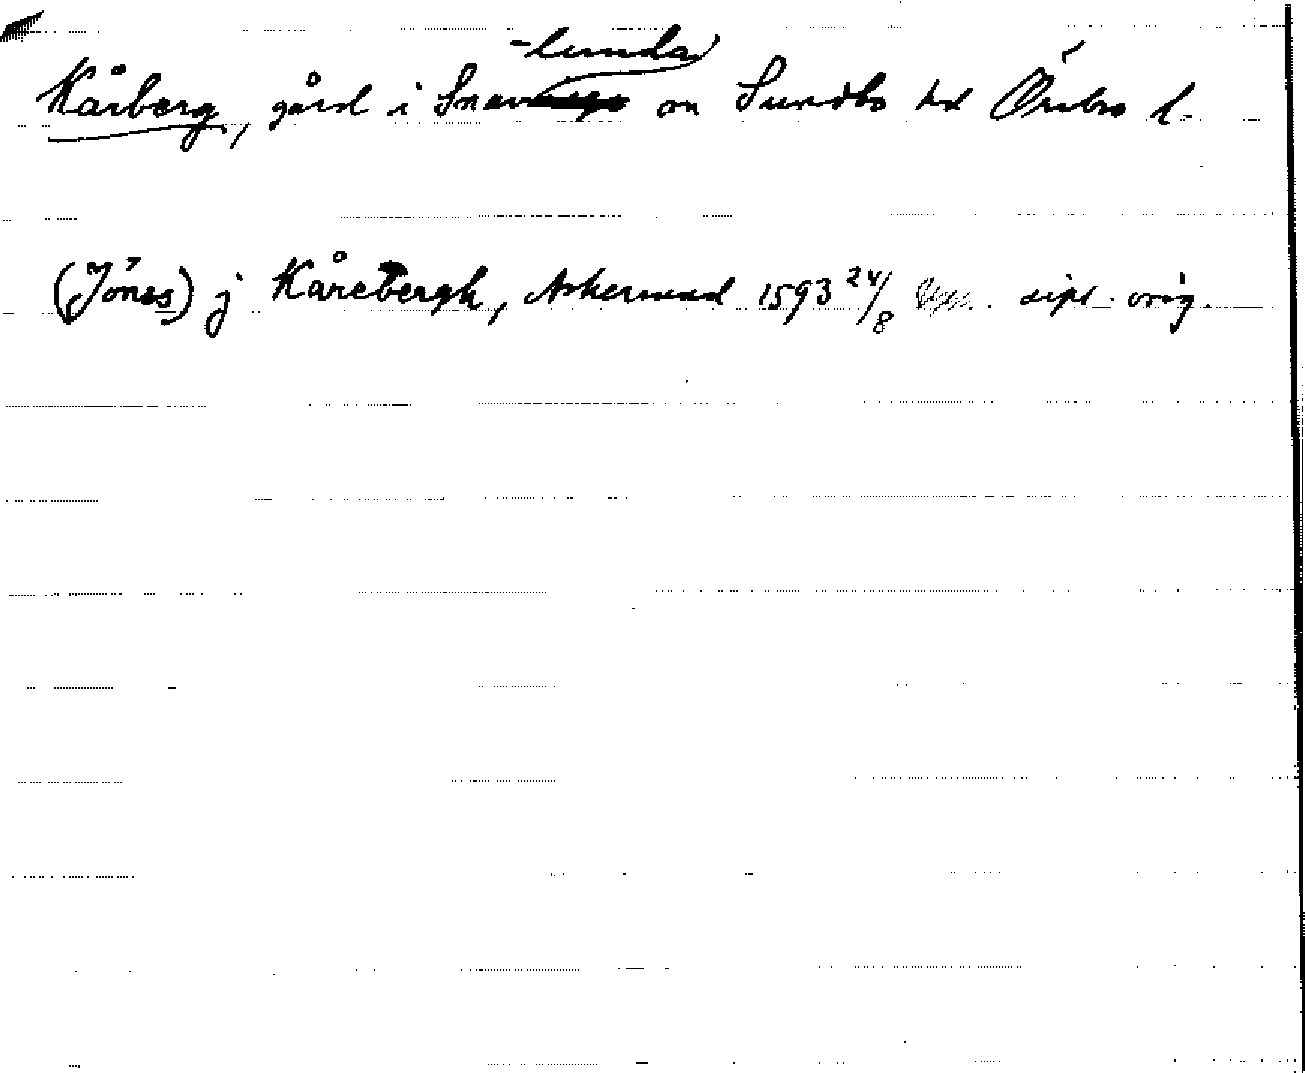 -lunda
Kårberg, gård i Snav on Sundbo hd Örebro l.
(Jönes) j Kårebergh, Askersund 1593 24/8 dipl. orig.